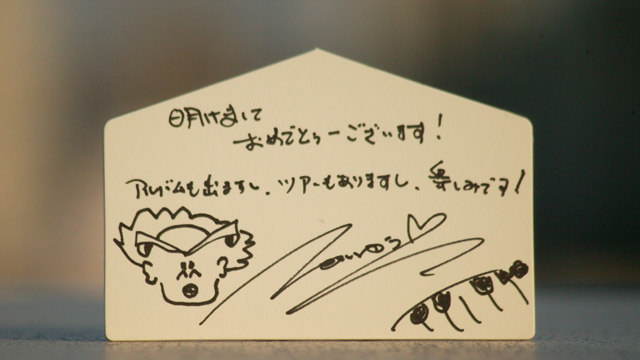 明けまして
おめでとうーございます!
アルバムも出ますし、ツアーもありますし、楽しみです!